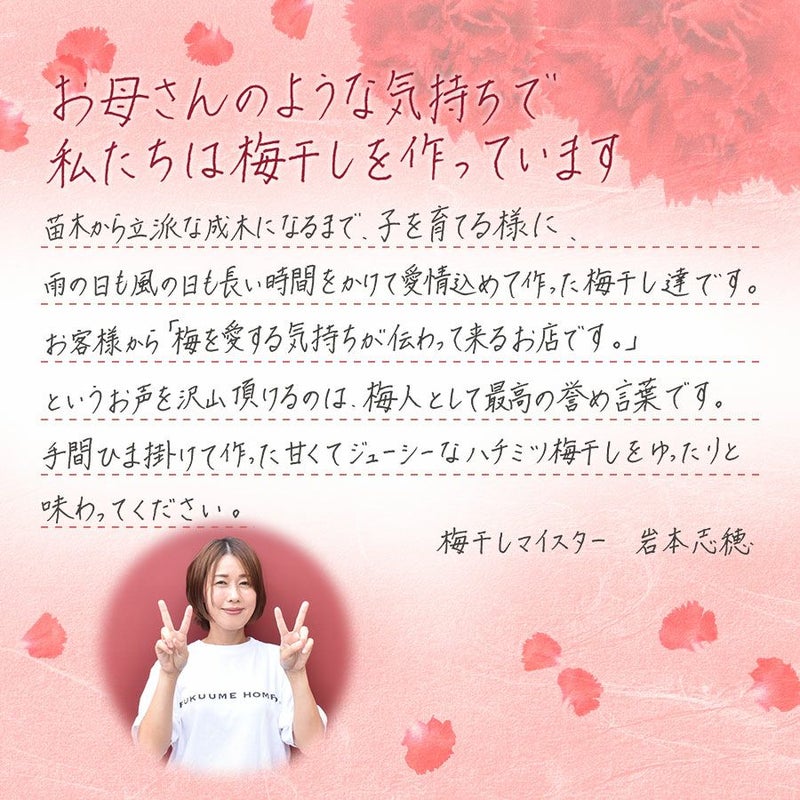 お母さんのような気持ちで
私たちは梅干しを作っています
苗木から立派な成木になるまで、子を育てる様に、
雨の日も風の日も長い時間をかけて愛情込めて作った梅干し達です。
お客様から「梅を愛する気持ちが伝わって来るお店です。」
というお声を沢山頂けるのは、梅人として最高の誉め言葉です。
手間ひま掛けて作った甘くてジューシーなハチミツ梅干しをゆったりと
味わってください。
梅干しマイスター 岩本志穂
FUKUUME HOME